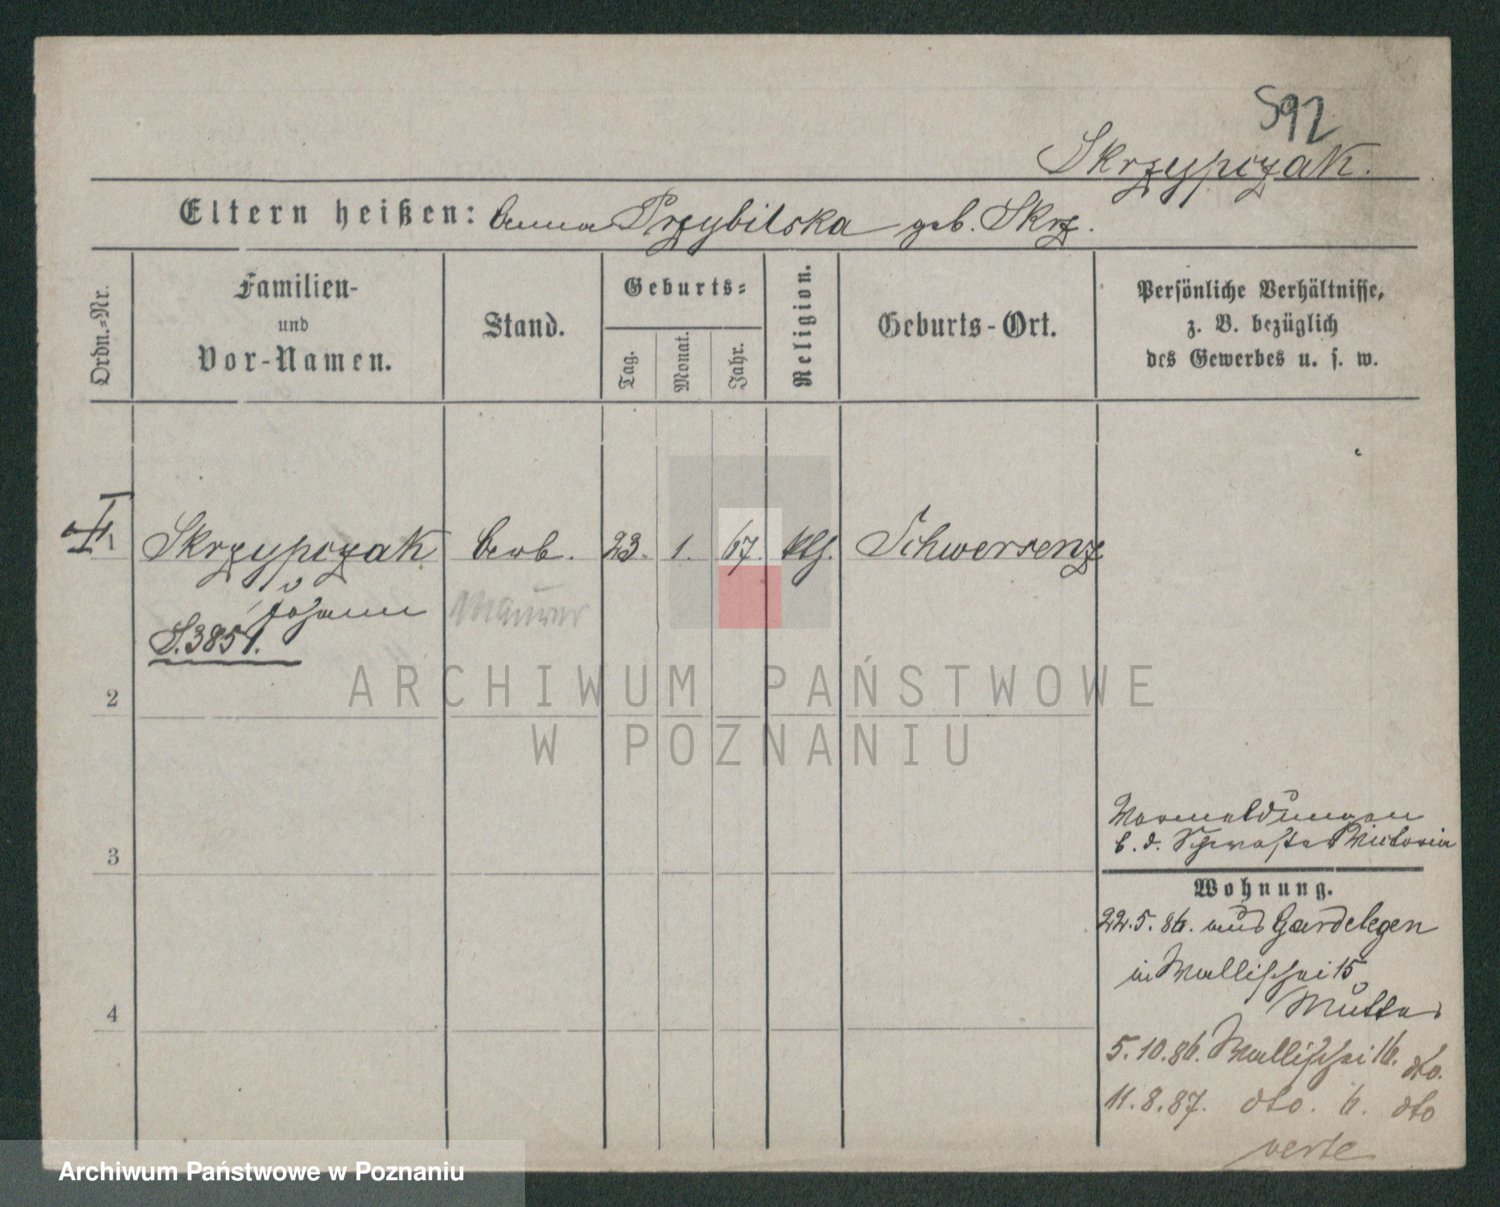 592
Skrzypczak.
Eltern heißen: Anna Przybilska geb. Skrz.
Ordn.-Nr.
Familien-
und
Vor-Namen.
Stand.
Geburts-
Tag.
Monat.
Jahr.
Religion.
Geburts-Ort.
Persönliche Verhältnisse,
z. B. bezüglich
des Gewerbes u. s. w.
1
Skrzypczak
23. 1. 67. kth. Schwersenz
Johann
Maurer
S. 3851.
2
3
4
Vormeldungen
b. d. Schwester Victoria
Wohnung.
22.5.86. aus Gardelegen
in Wallischei 15
Mutter
5.10.86. Wallischei 16. dto.
11.8.87. dto. 6. dto
verte
ARCHIWUM PAŃSTWOWE
W POZNANIU
Archiwum Państwowe w Poznaniu